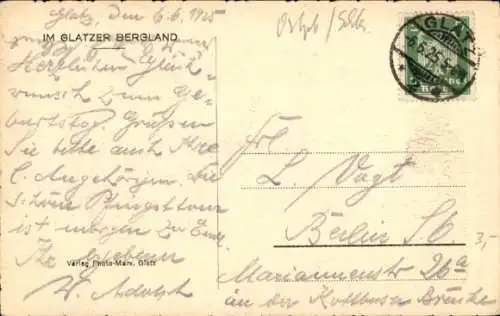 Glatz, den 6.6.1925
IM GLATZER BERGLAND
Herzlichen Glück-
wunsch zum Ge-
burtstag. Grüßen
Sie bitte auch Ihre
l. Angehörigen. Die
schöne Pfingsttour
ist morgen zu Ende.
Ihr ergebener
W. Adolph
Verlag Photo-Marx, Glatz
GLATZ
6.6.25
Frl.
L. Vogt
Berlin S.O.
Mariannenstr 26a
an der Kottbuser Brücke
3,-